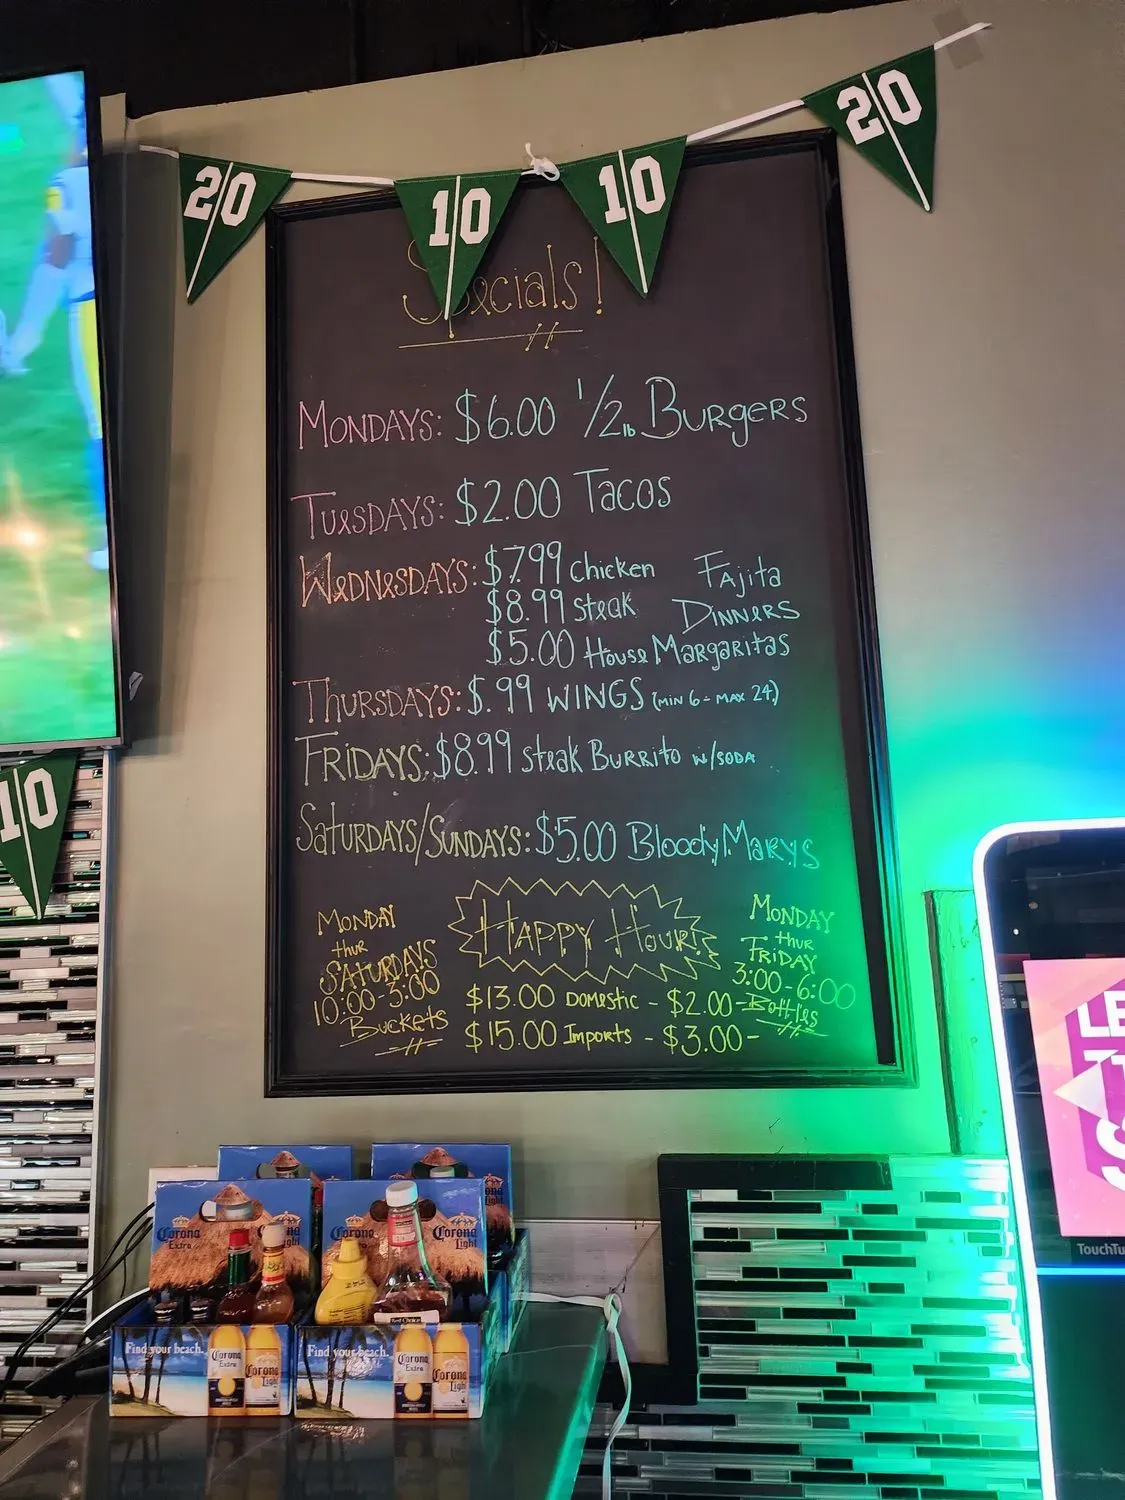 20
10
10
20
Specials!
Mondays: $6.00 1/2 lb Burgers
Tuesdays: $2.00 Tacos
Wednesdays: $7.99 Chicken Fajita
$8.99 Steak Dinners
$5.00 House Margaritas
Thursdays: $.99 WINGS (MIN 6 - MAX 24)
Fridays: $8.99 Steak Burrito w/SODA
Saturdays/Sundays: $5.00 Bloody Marys
Monday
thur
Saturdays
10:00-3:00
Buckets
Happy Hour!
Monday
thur
Friday
3:00-6:00
Bottles
$13.00 Domestic - $2.00-
$15.00 Imports - $3.00-
10
Corona
Extra
Corona
Light
Corona
Light
Find your beach.
Corona
Extra
Corona
Light
Find your beach.
Corona
Extra
Corona
Light
LE
TouchTu